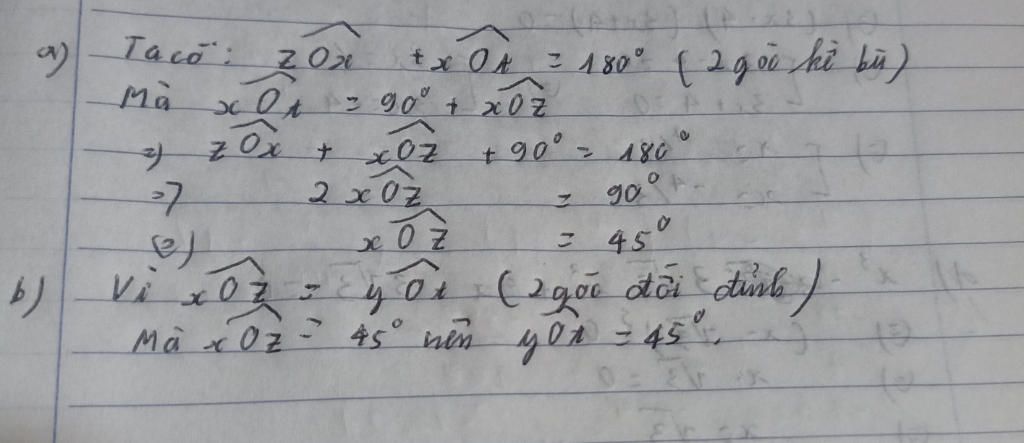 a) Ta có: zOx + xOt = 180° (2 góc kề bù)
Mà xOt = 90° + xOz
=> zOx + xOz + 90° = 180°
=> 2 xOz = 90°
(=) xOz = 45°
b) Vì xOz = yOt (2 góc đối đỉnh)
Mà xOz = 45° nên yOt = 45°.